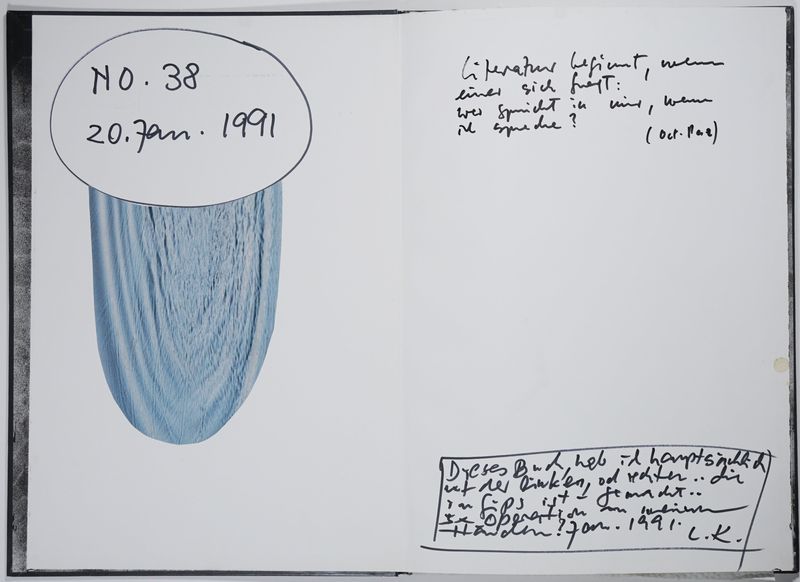 NO. 38
20. Jan. 1991
Literatur beginnt, wenn
einer sich fragt:
wer spricht in mir, wenn
ich spreche?
(Oct. Paz)
Dieses Buch, hab ich hauptsächlich
mit der linken, od rechten .. die
in Gips ist - gemacht ..
Operation an meinen
Händen? Jan. 1991.
L.K.